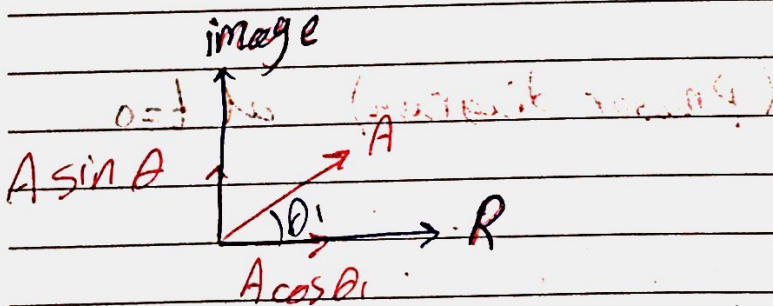 image
A
A sin θ
θ1
R
A cos θ1